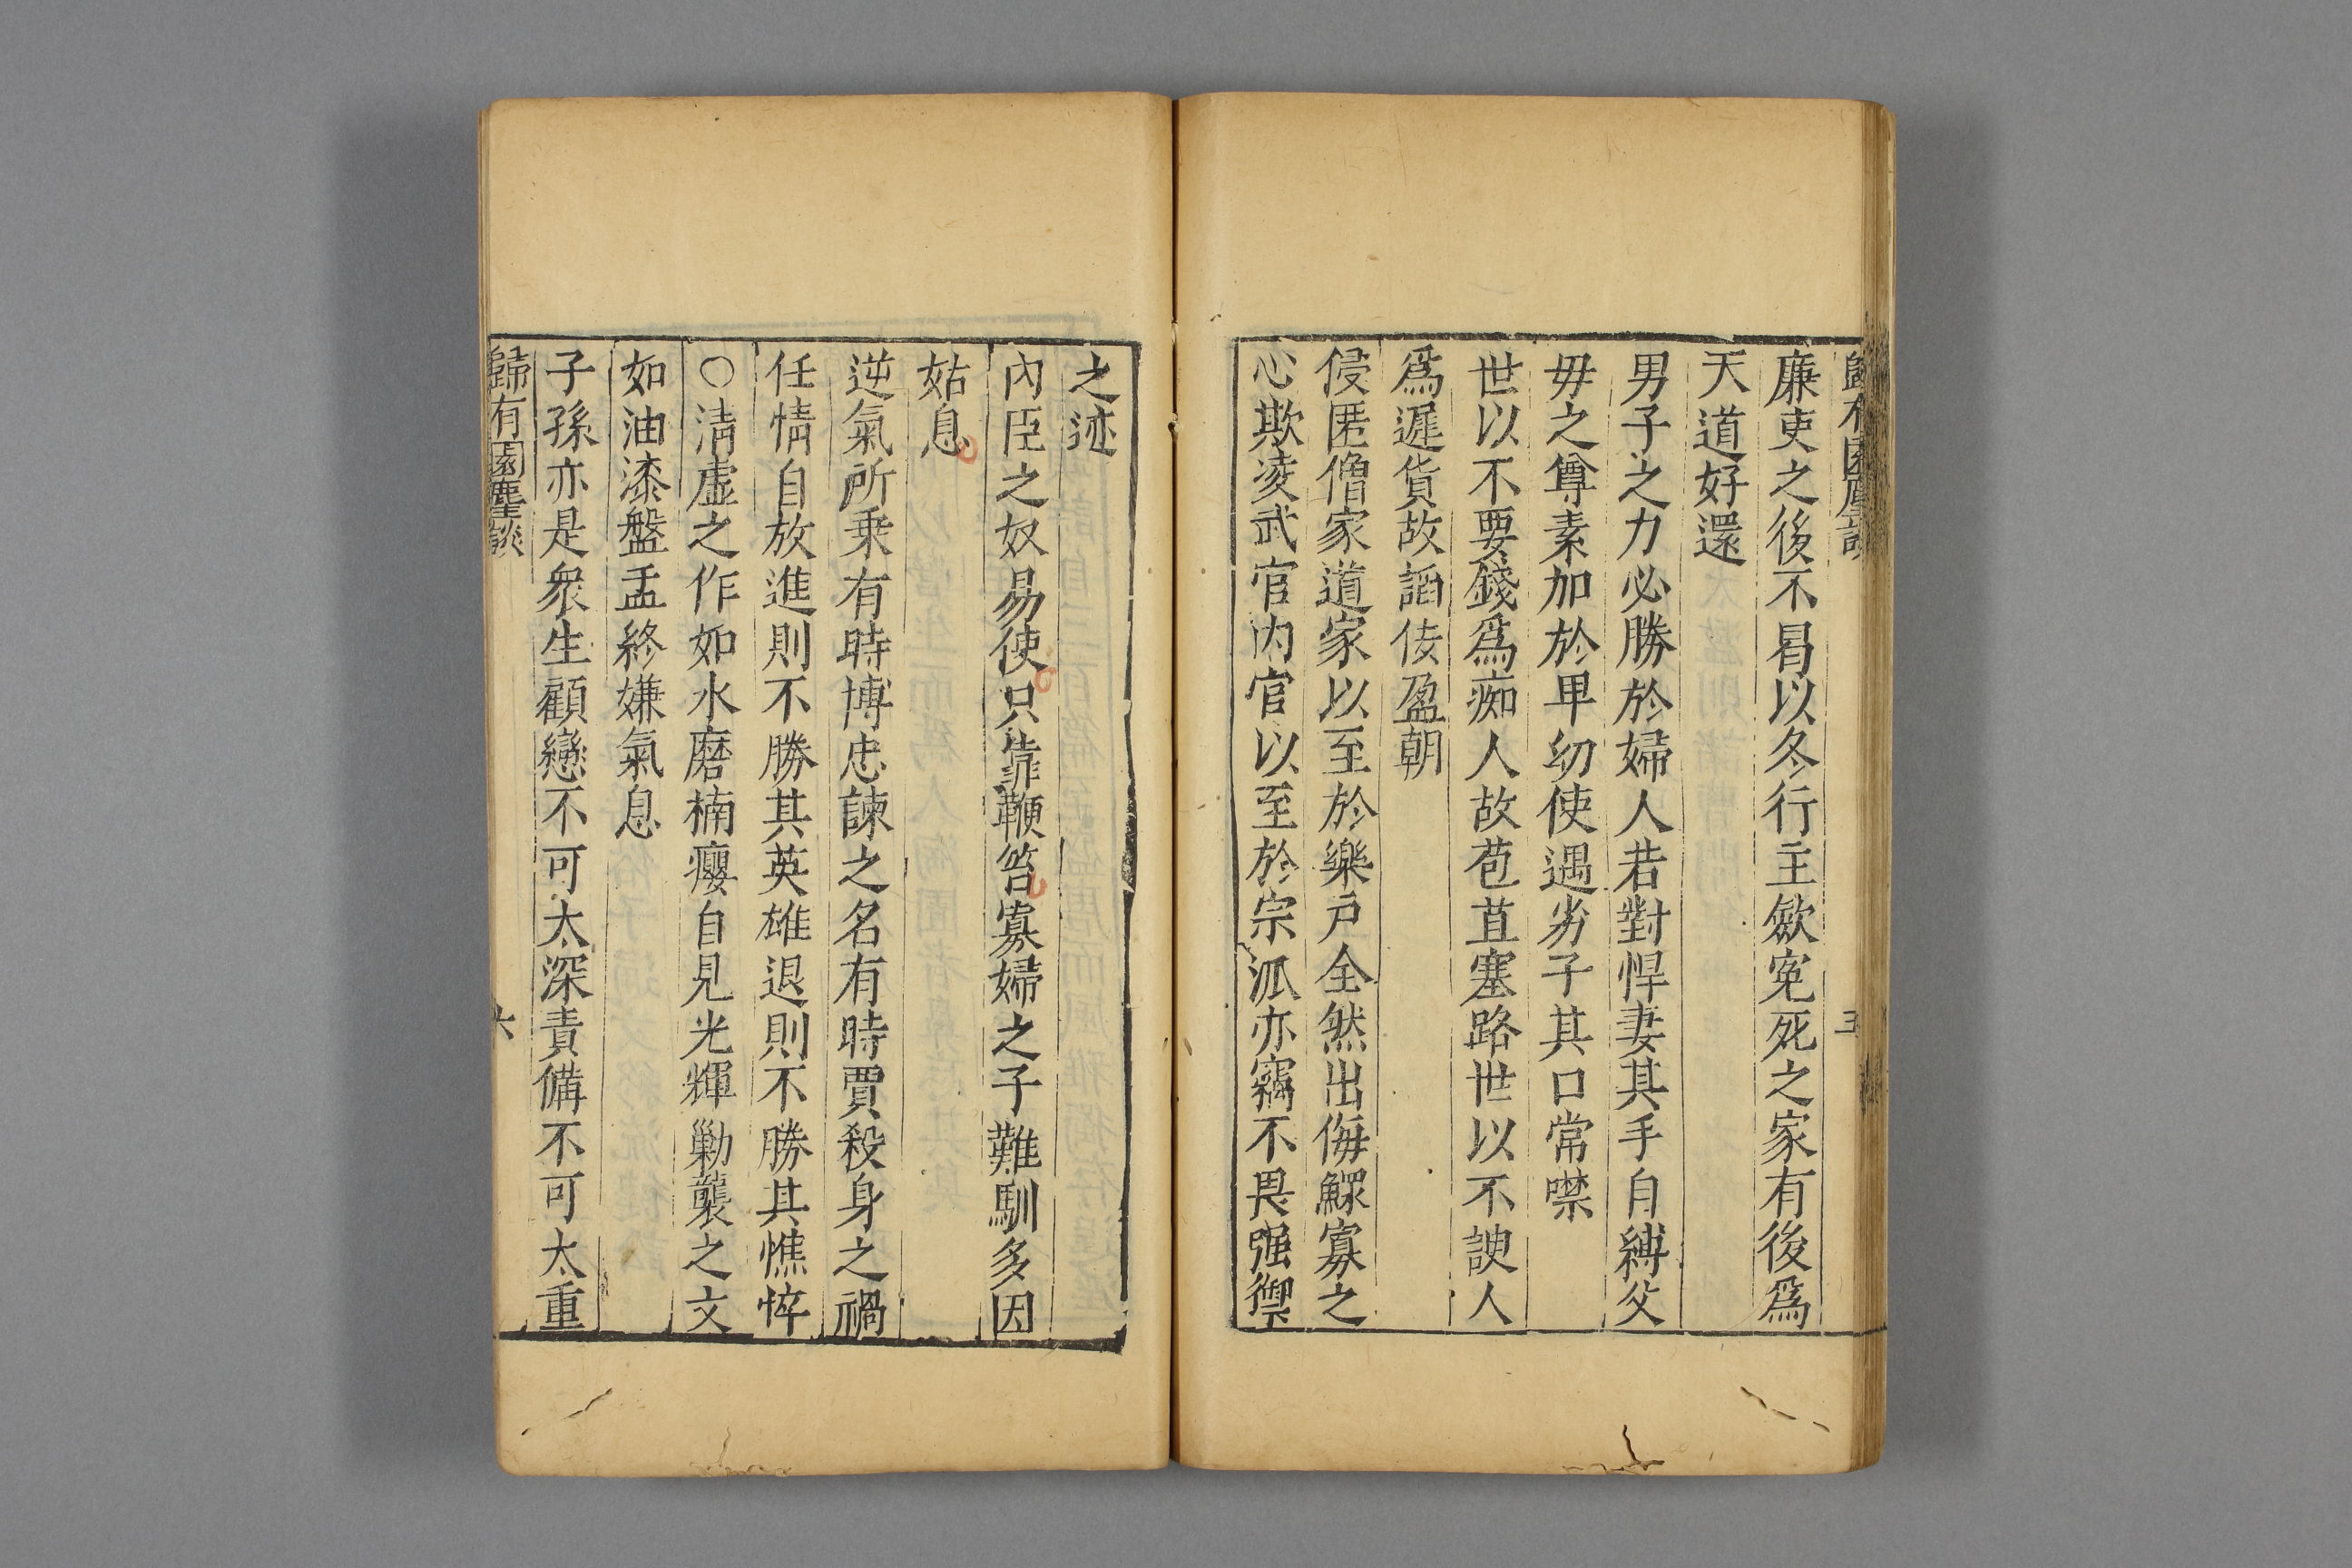 廉吏之後不昌以冬行主歛寃死之家有後爲
天道好還
男子之力必勝於婦人若對悍妻其手自縛父
毋之尊素加於卑幼使遇劣子其口常噤
世以不要錢爲痴人故苞苴塞路世以不諛人
爲遲貨故謟佞盈朝
侵匿僧家道家以至於樂戸全然出侮鰥寡之
心欺凌武官内官以至於宗派亦竊不畏强禦
之迹
內臣之奴易使只靠鞭笞寡婦之子難馴多因
姑息
逆氣所乗有時博忠諫之名有時賈殺身之禍
任情自放進則不勝其英雄退則不勝其憔悴
○清虛之作如水磨楠癭自見光輝勦襲之文
如油漆盤盂終嫌氣息
子孫亦是衆生顧戀不可太深責備不可太重
歸有園麈談
六